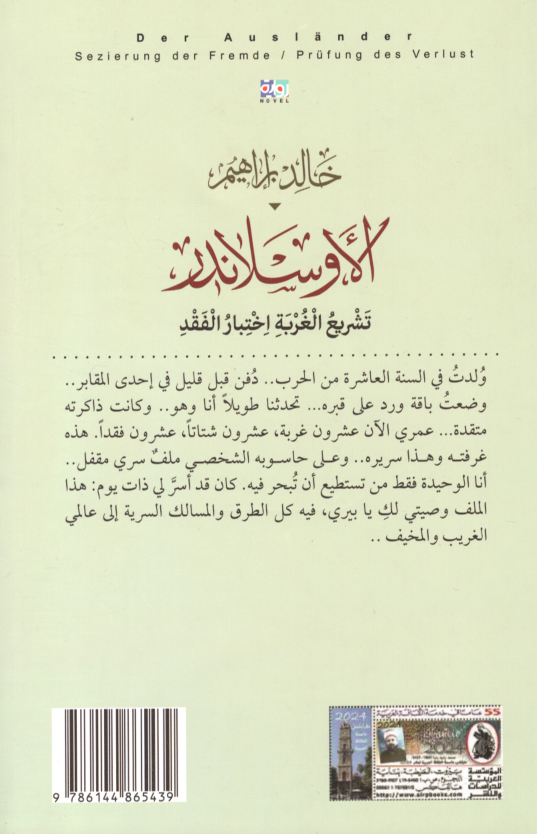 Der Ausländer
Sezierung der Fremde / Prüfung des Verlust
رواية
NOVEL
خالد إبراهيم
الأوسلاندر
تَشْرِيعُ الْغُرْبَةِ اِخْتِبارُ الْفَقْدِ
وُلدتُ في السنة العاشرة من الحرب.. دُفن قبل قليل في إحدى المقابر..
وضعتُ باقة ورد على قبره... تحدثنا طويلاً أنا وهو.. وكانت ذاكرته
متقدة... عمري الآن عشرون غربة، عشرون شتاتاً، عشرون فقداً. هذه
غرفتـه وهـذا سريره.. وعـلى حاسـوبه الشخصـي ملفٌ سري مقفل..
أنا الوحيدة فقط من تستطيع أن تُبحر فيه. كان قد أسرَّ لي ذات يوم: هذا
الملف وصيتي لكِ يا بيري، فيه كل الطرق والمسالك السرية إلى عالمي
الغريب والمخيف ..
9 786144 865439
2024
55
2024
المؤسسة
العربية
للدراسات
والنشر
http://www.airpbooks.com